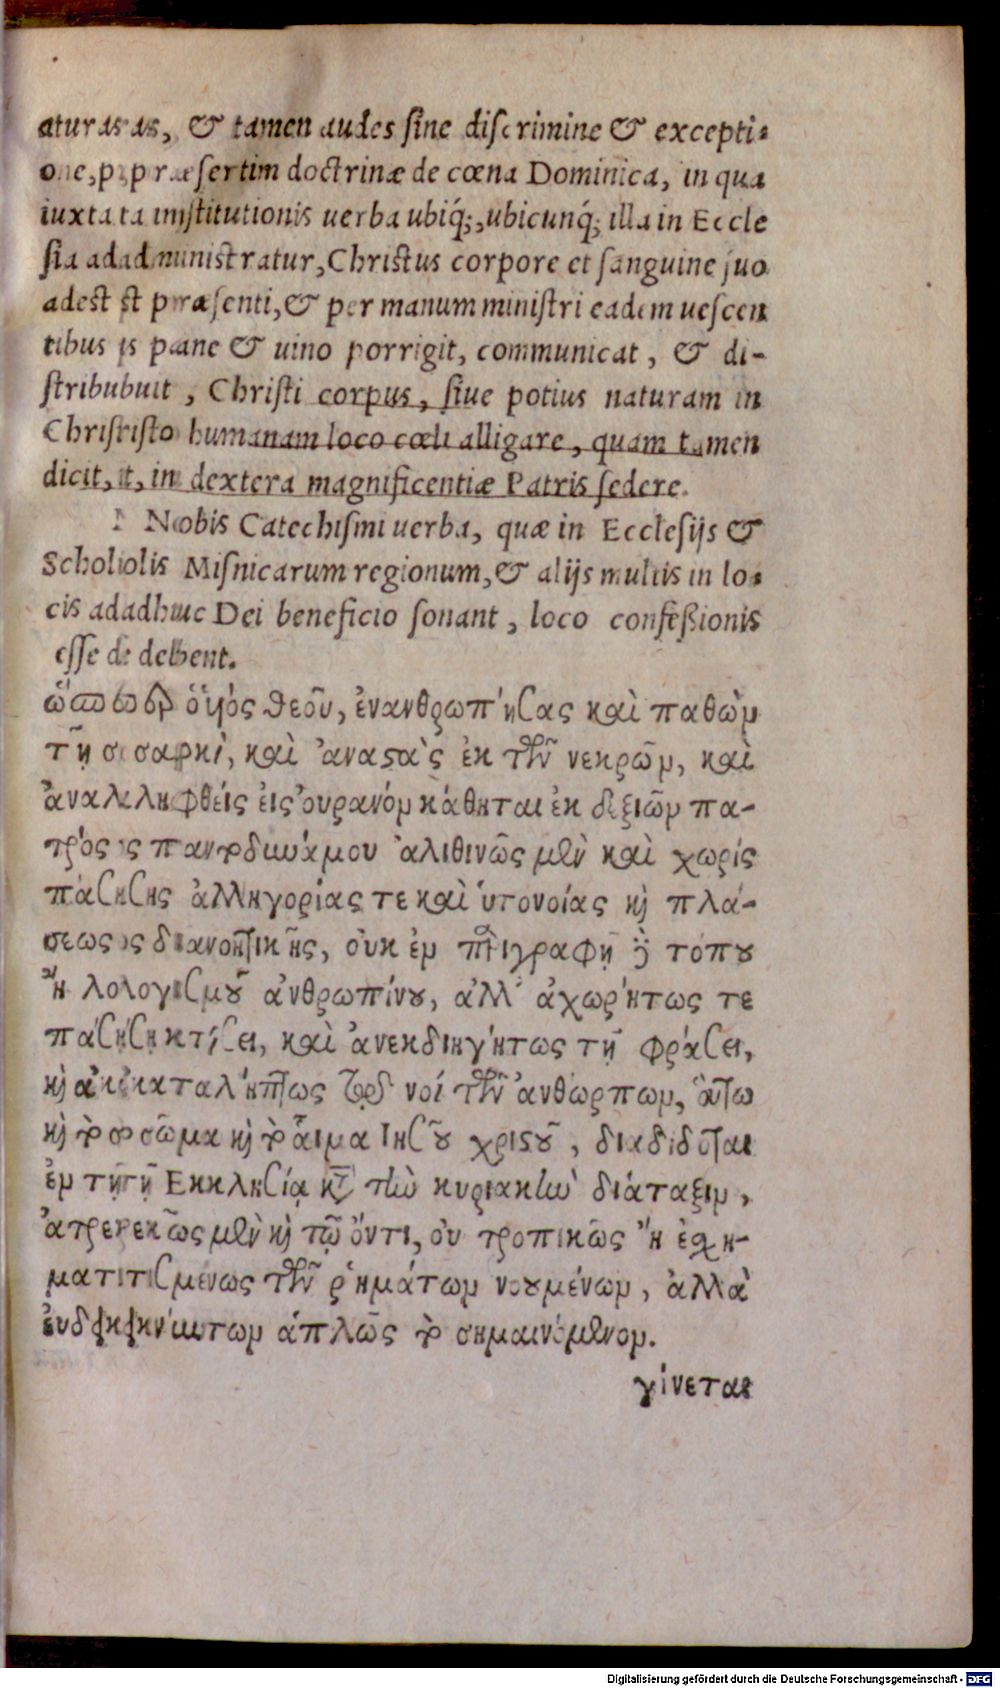 aturas, & tamen audes sine discrimine & excepti-
one, præsertim doctrinæ de cœna Dominica, in qua
iuxta institutionis uerba ubiq́;, ubicunq́; illa in Eccle
sia administratur, Christus corpore et sanguine suo
adest præsenti, & per manum ministri eadem uescen
tibus pane & uino porrigit, communicat, & di-
stribuit, Christi corpus, siue potius naturam in
Christo humanam loco cœli alligare, quam tamen
dicit, in dextera magnificentiæ Patris sedere.
Nobis Catechismi uerba, quæ in Ecclesijs &
Scholis Misnicarum regionum, & alijs multis in lo-
cis adhuc Dei beneficio sonant, loco confeßionis
esse debent.
ὁ ὑιὸς θεοῦ, ἐνανθρωπήσας καὶ παθὼν
τῇ σαρκὶ, καὶ ἀναστὰς ἐκ τῶν νεκρῶν, καὶ
ἀναληφθείς εἰς ὀυρανόν κάθηται ἐκ δεξιῶν πα-
τρός παντοδυνάμου ἀλιθινῶς μὲν καὶ χωρίς
πάσης ἀλληγορίας τε καὶ ὑπονοίας κὶ πλά-
σεως διανοητικῆς, οὐκ ἐν περιγραφῇ τόπου
ἢ λογισμοῦ ἀνθρωπίνου, ἀλλ' ἀχωρήτως τε
πάσῃ κτίσει, καὶ ἀνεκδιηγήτως τῇ φράσει,
κὶ ἀκαταλήπτως νοί τῶν ἀνθώρπων, οὕτω
κὶ τὸ σῶμα κὶ τὸ αἷμα Ιησοῦ χριστοῦ, διαδίδοται
ἐν τῇ Εκκλησίᾳ κτ' τὴν κυριακὴν διάταξιν,
ἀτρεκῶς μὲν κὶ τῷ ὄντι, οὐ τροπικῶς ἢ ἐσχη-
ματισμένως τῶν ῥημάτων νουμένων, ἀλλὰ
ἁπλῶς τὸ σημαινόμενον.
γίνεται
Digitalisierung gefördert durch die Deutsche Forschungsgemeinschaft - DFG